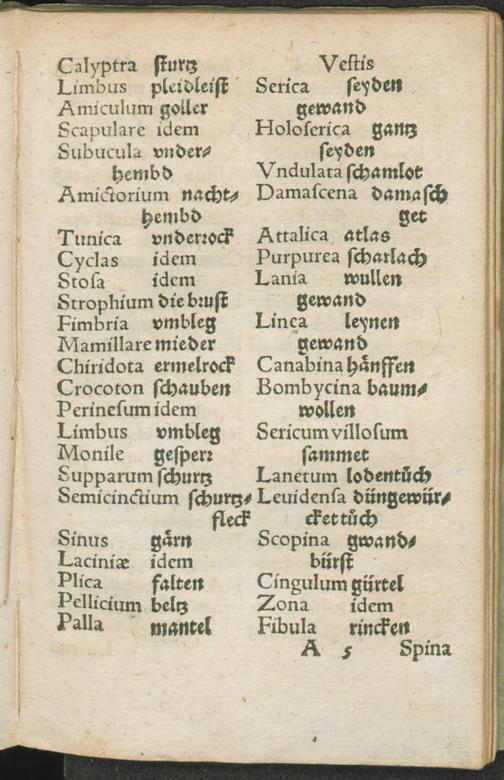 Calyptra ſturtz
Limbus pleidleiſt
Amiculum goller
Scapulare idem
Subucula vnder⸗
hembd
Amictorium nacht⸗
hembd
Tunica vnderrock
Cyclas idem
Stoſa idem
Strophium die bruſt
Fimbria vmbleg
Mamillare mieder
Chiridota ermelrock
Crocoton ſchauben
Perineſum idem
Limbus vmbleg
Monile geſperr
Supparum ſchurtz
Semicinctium ſchurtz⸗
fleck
Sinus gärn
Laciniæ idem
Plica falten
Pellicium beltz
Palla mantel
Veſtis
Serica ſeyden
gewand
Holoſerica gantz
ſeyden
Vndulata ſchamlot
Damaſcena damaſch
get
Attalica atlas
Purpurea ſcharlach
Lania wullen
gewand
Linea leynen
gewand
Canabina hänffen
Bombycina baum⸗
wollen
Sericum villoſum
ſammet
Lanetum lodentůch
Leuidenſa düngewür⸗
cket tůch
Scopina gwand⸗
bürſt
Cingulum gürtel
Zona idem
Fibula rincken
A 5 Spina